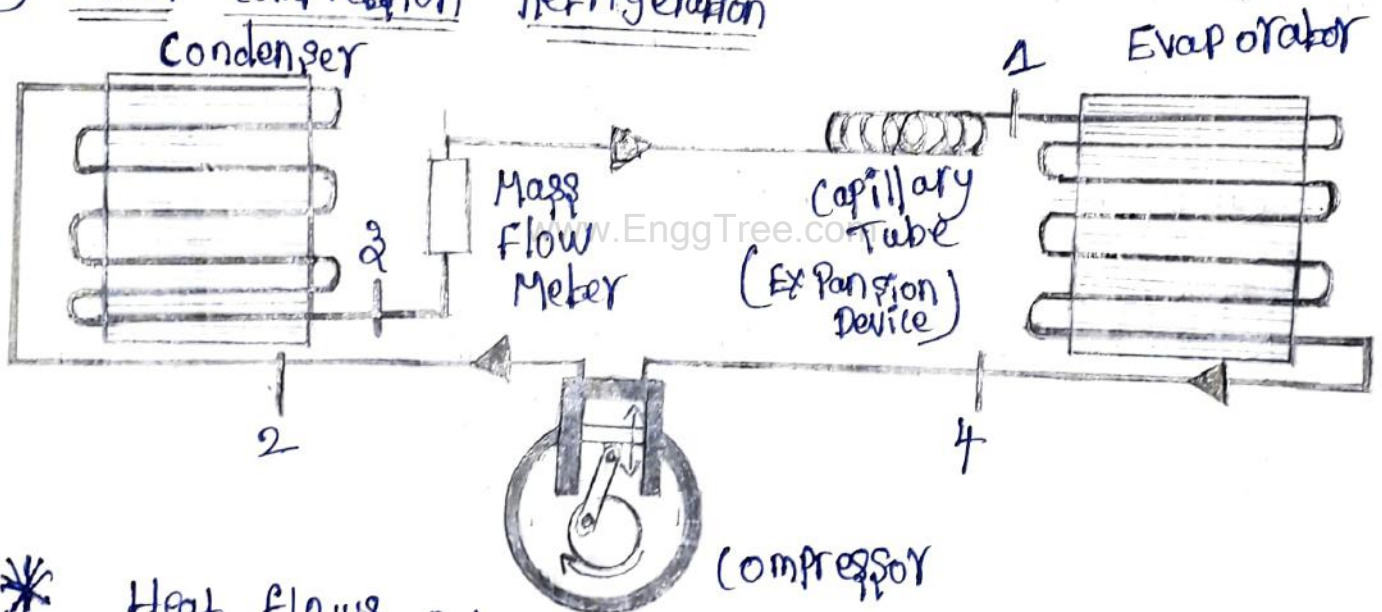 Compression Refrigeration
Condenser
1
Evaporator
Mass
Flow
Meter
www.EnggTree.com
Capillary
Tube
(Expansion
Device)
3
2
4
Compressor
* Heat flows